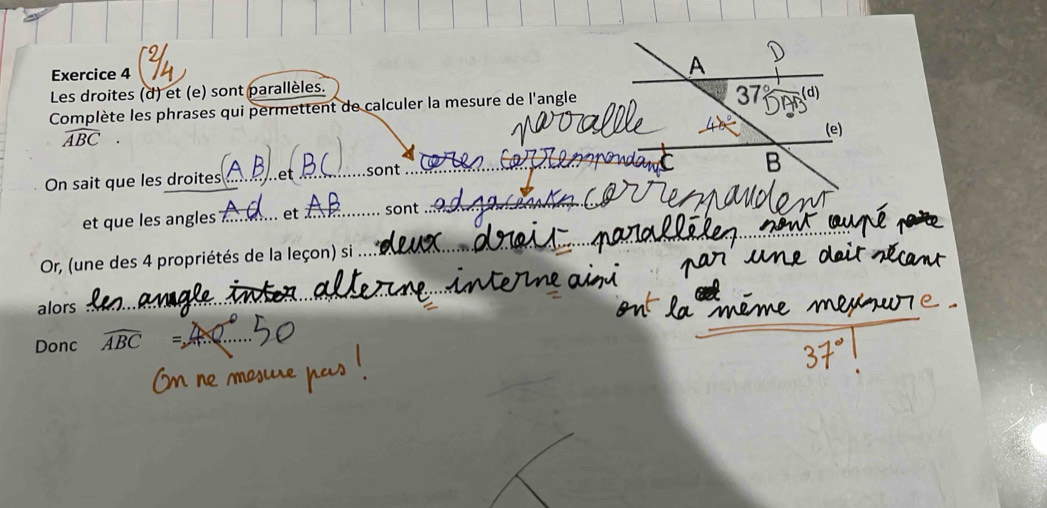 Exercice 4 2/4
Les droites (d) et (e) sont parallèles.
Complète les phrases qui permettent de calculer la mesure de l'angle
ABC .
A D
37° DAB (d)
40° (e)
C B
parralle
On sait que les droites (AB) et (BC) sont correspondant
et que les angles Ad et AB sont adjacents correspandent
Or, (une des 4 propriétés de la leçon) si deux droit parallèles sont coupé
par une doit sécant
alors les angle alterne interne aini ont la même mesure.
Donc ABC = 40° 50
37°!
On ne mesure pas !